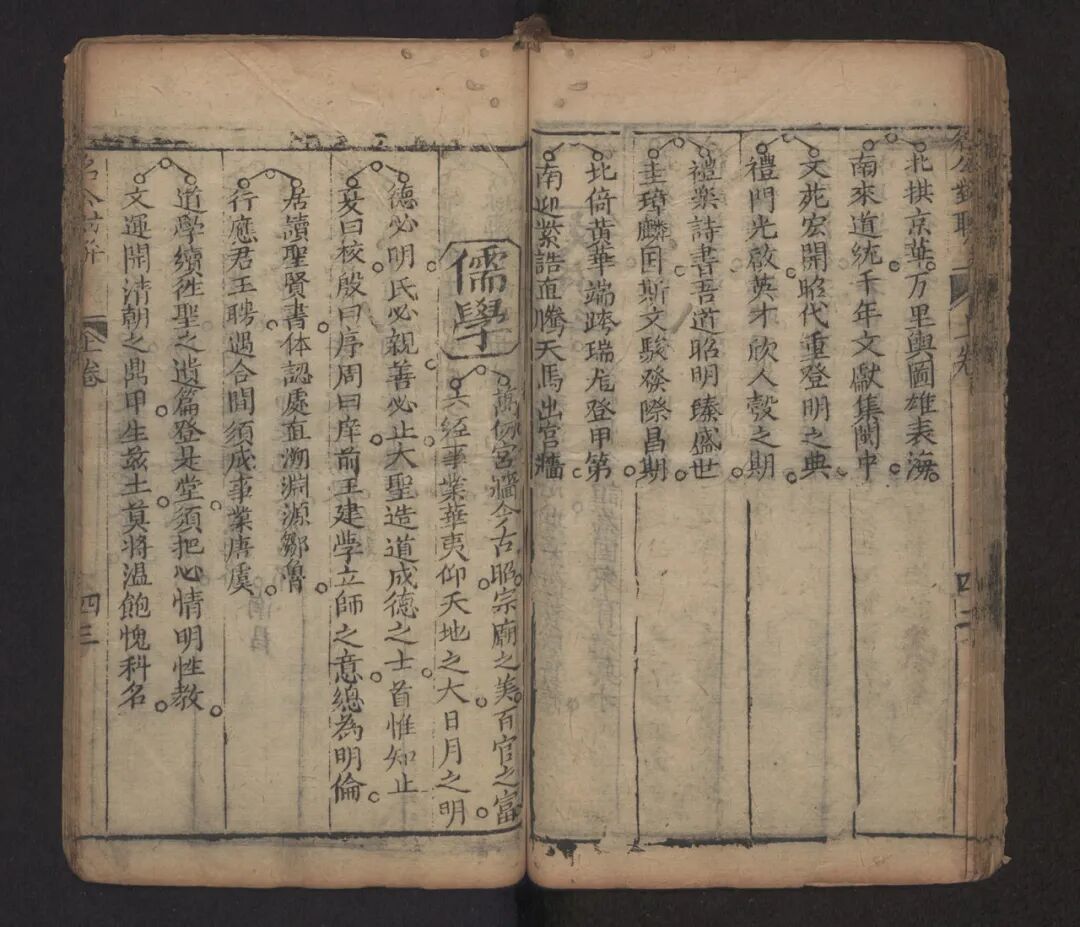 北拱京華万里輿圖雄表海
南來道統千年文獻集閩中
文苑宏開昭代重登明之典
禮門光啟英才欣入彀之期
禮樂詩書吾道昭明臻盛世
圭璋麟国斯文駿發際昌期
北倚黄華端跨瑞尨登甲第
南迎紫誥直騰天馬出宫牆
儒學
萬仞宮牆今古昭宗廟之美百官之富
六經事業華夷仰天地之大日月之明
德必明民必親善必止大聖造道成德之士首惟知止
夏曰校殷曰序周曰庠前王建学立師之意總為明倫
居讀聖賢書体認處直溯淵源鄒魯
行應君王聘遇合間須成事業唐虞
道學續徃聖之遺篇登是堂須把心情明性教
文運開清朝之鼎甲生兹土莫將温飽愧科名
上卷
四三